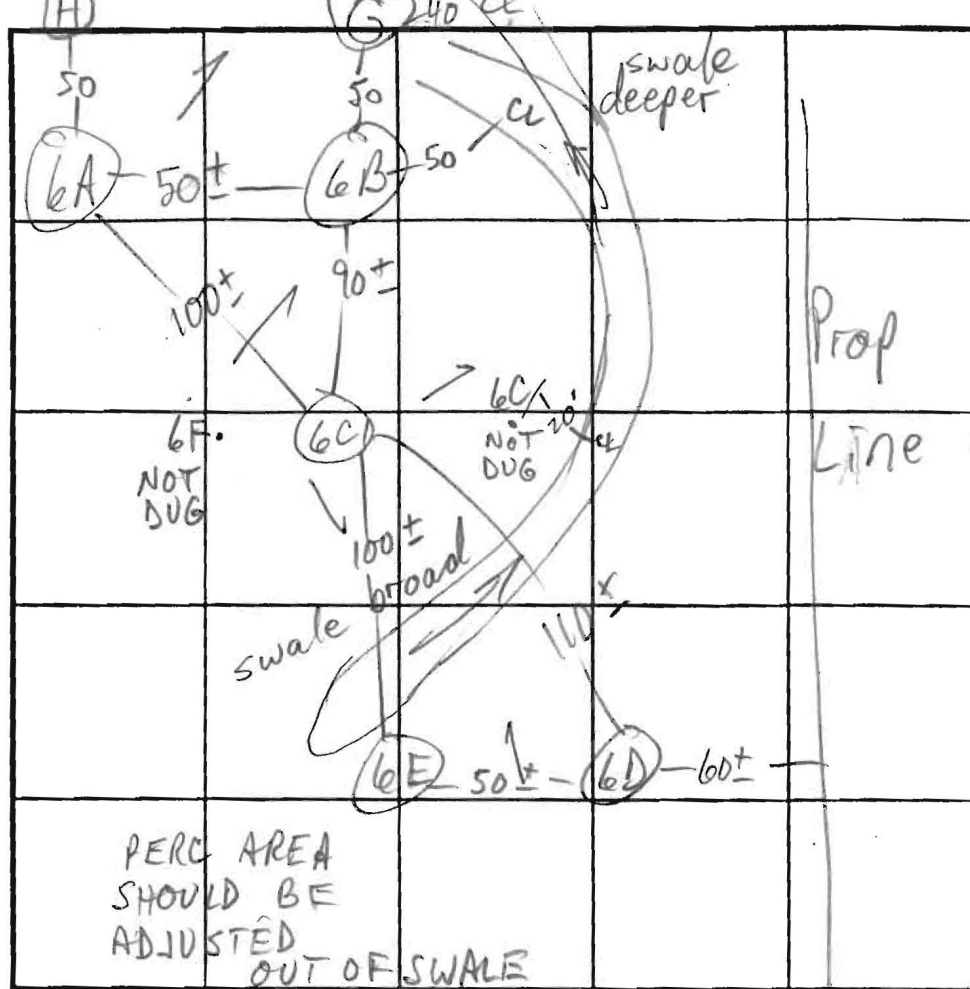 H
G
240
CL
50
50
swale
deeper
CL
6A
50±
6B
50
90±
100±
Prop
Line
6F.
NOT
DUG
6C
6C/
NOT
DUG
20'
CL
100±
broad
swale
6E
50±
6D
60±
PERC AREA
SHOULD BE
ADJUSTED
OUT OF SWALE